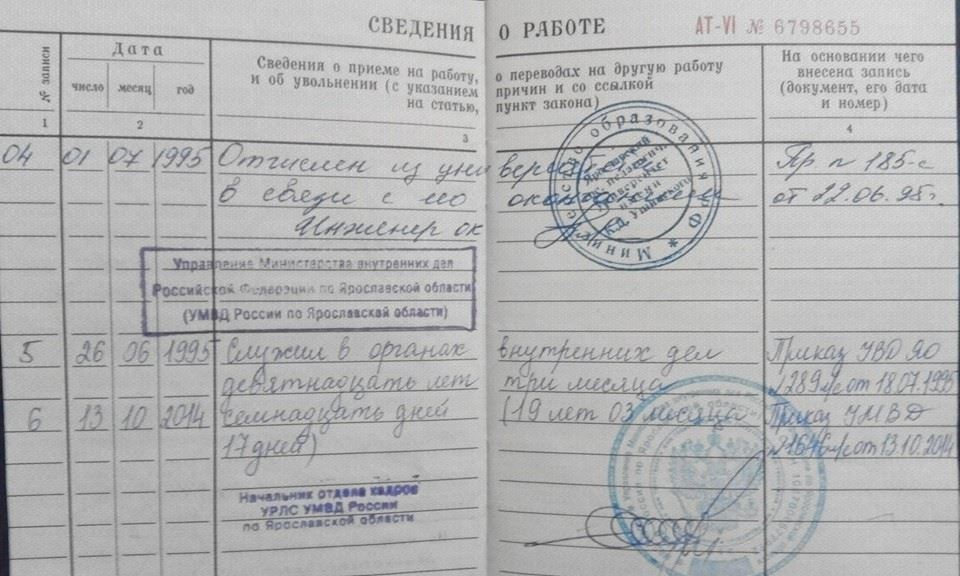 СВЕДЕНИЯ О РАБОТЕ АТ-VI № 6798655
№ записи
Дата
число месяц год
Сведения о приеме на работу, о переводах на другую работу
и об увольнении (с указанием причин и со ссылкой
на статью, пункт закона)
На основании чего
внесена запись
(документ, его дата
и номер)
1 2 3 4
04 01 07 1995 Отчислен из универси Пр n 185-с
в связи с его окончанием от 22.06.95г.
Инженер ок
Министерство образования РФ
Ярославский
педагогич.
университет
имени
К.Д. Ушинского
Управление Министерства внутренних дел
Российской Федерации по Ярославской области
(УМВД России по Ярославской области)
5 26 06 1995 Служил в органах внутренних дел Приказ УВД ЯО
девятнадцать лет три месяца №289 л/с от 18.07.1995
6 13 10 2014 семнадцать дней (19 лет 03 месяца Приказ УМВД
17 дней) №1646 л/с от 13.10.2014
Начальник отдела кадров
УРЛС УМВД России
по Ярославской области